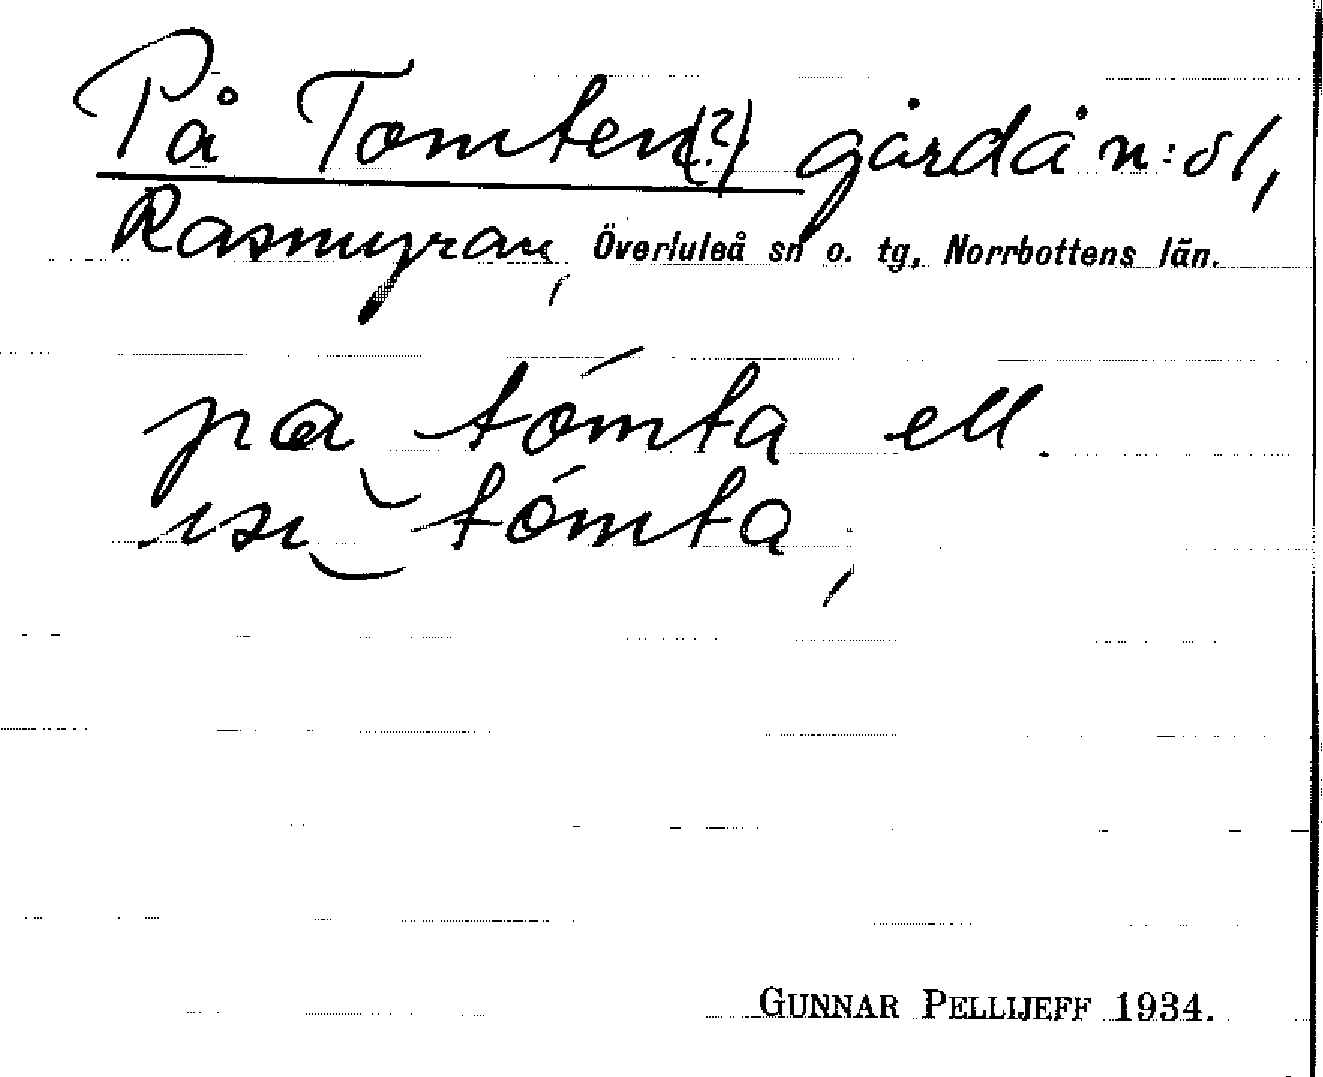 På Tomten(?) gård å n:o 1,
Rasmyran, Överluleå sn o. tg, Norrbottens län.
på tómta ell.
tómta,
GUNNAR PELLIJEFF 1934.